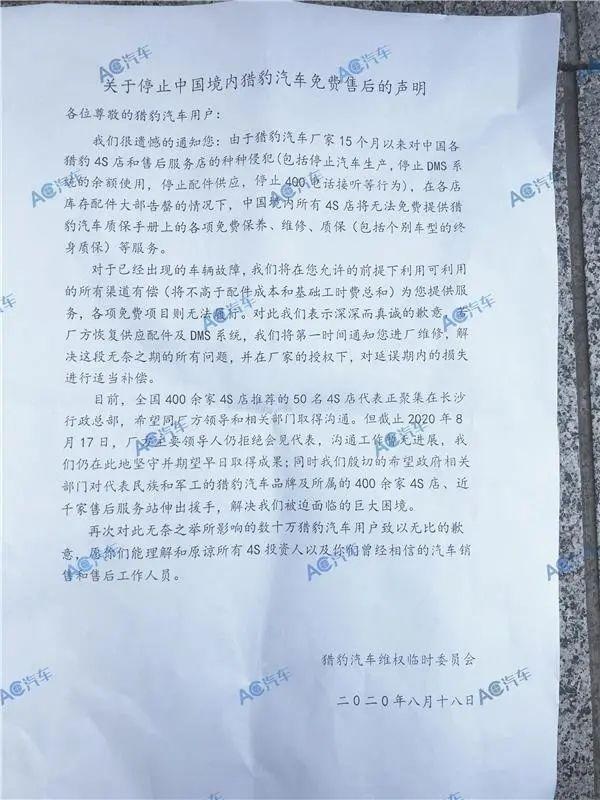 关于停止中国境内猎豹汽车免费售后的声明
各位尊敬的猎豹汽车用户：
我们很遗憾的通知您：由于猎豹汽车厂家15个月以来对中国各
猎豹4S店和售后服务店的种种侵犯(包括停止汽车生产,停止DMS系
统的余额使用，停止配件供应，停止400电话接听等行为)，在各店
库存配件大部告罄的情况下，中国境内所有4S店将无法免费提供猎
豹汽车质保手册上的各项免费保养、维修、质保（包括个别车型的终
身质保）等服务。
对于已经出现的车辆故障,我们将在您允许的前提下利用可利用
的所有渠道有偿（将不高于配件成本和基础工时费总和）为您提供服
务，各项免费项目则无法履行。对此我们表示深深而真诚的歉意。若
厂方恢复供应配件及DMS系统，我们将第一时间通知您进厂维修，解
决这段无奈之期的所有问题，并在厂家的授权下，对延误期内的损失
进行适当补偿。
目前，全国400余家4S店推荐的50名4S店代表正聚集在长沙
行政总部，希望同厂方领导和相关部门取得沟通。但截止2020年8
月17日，厂方主要领导人仍拒绝会见代表，沟通工作暂无进展，我
们仍在此地坚守并期望早日取得成果;同时我们殷切的希望政府相关
部门对代表民族和军工的猎豹汽车品牌及所属的400余家4S店、近
千家售后服务站伸出援手，解决我们被迫面临的巨大困境。
再次对此无奈之举所影响的数十万猎豹汽车用户致以无比的歉
意，愿你们能理解和原谅所有4S投资人以及你们曾经相信的汽车销
售和售后工作人员。
猎豹汽车维权临时委员会
二〇二〇年八月十八日
AC汽车